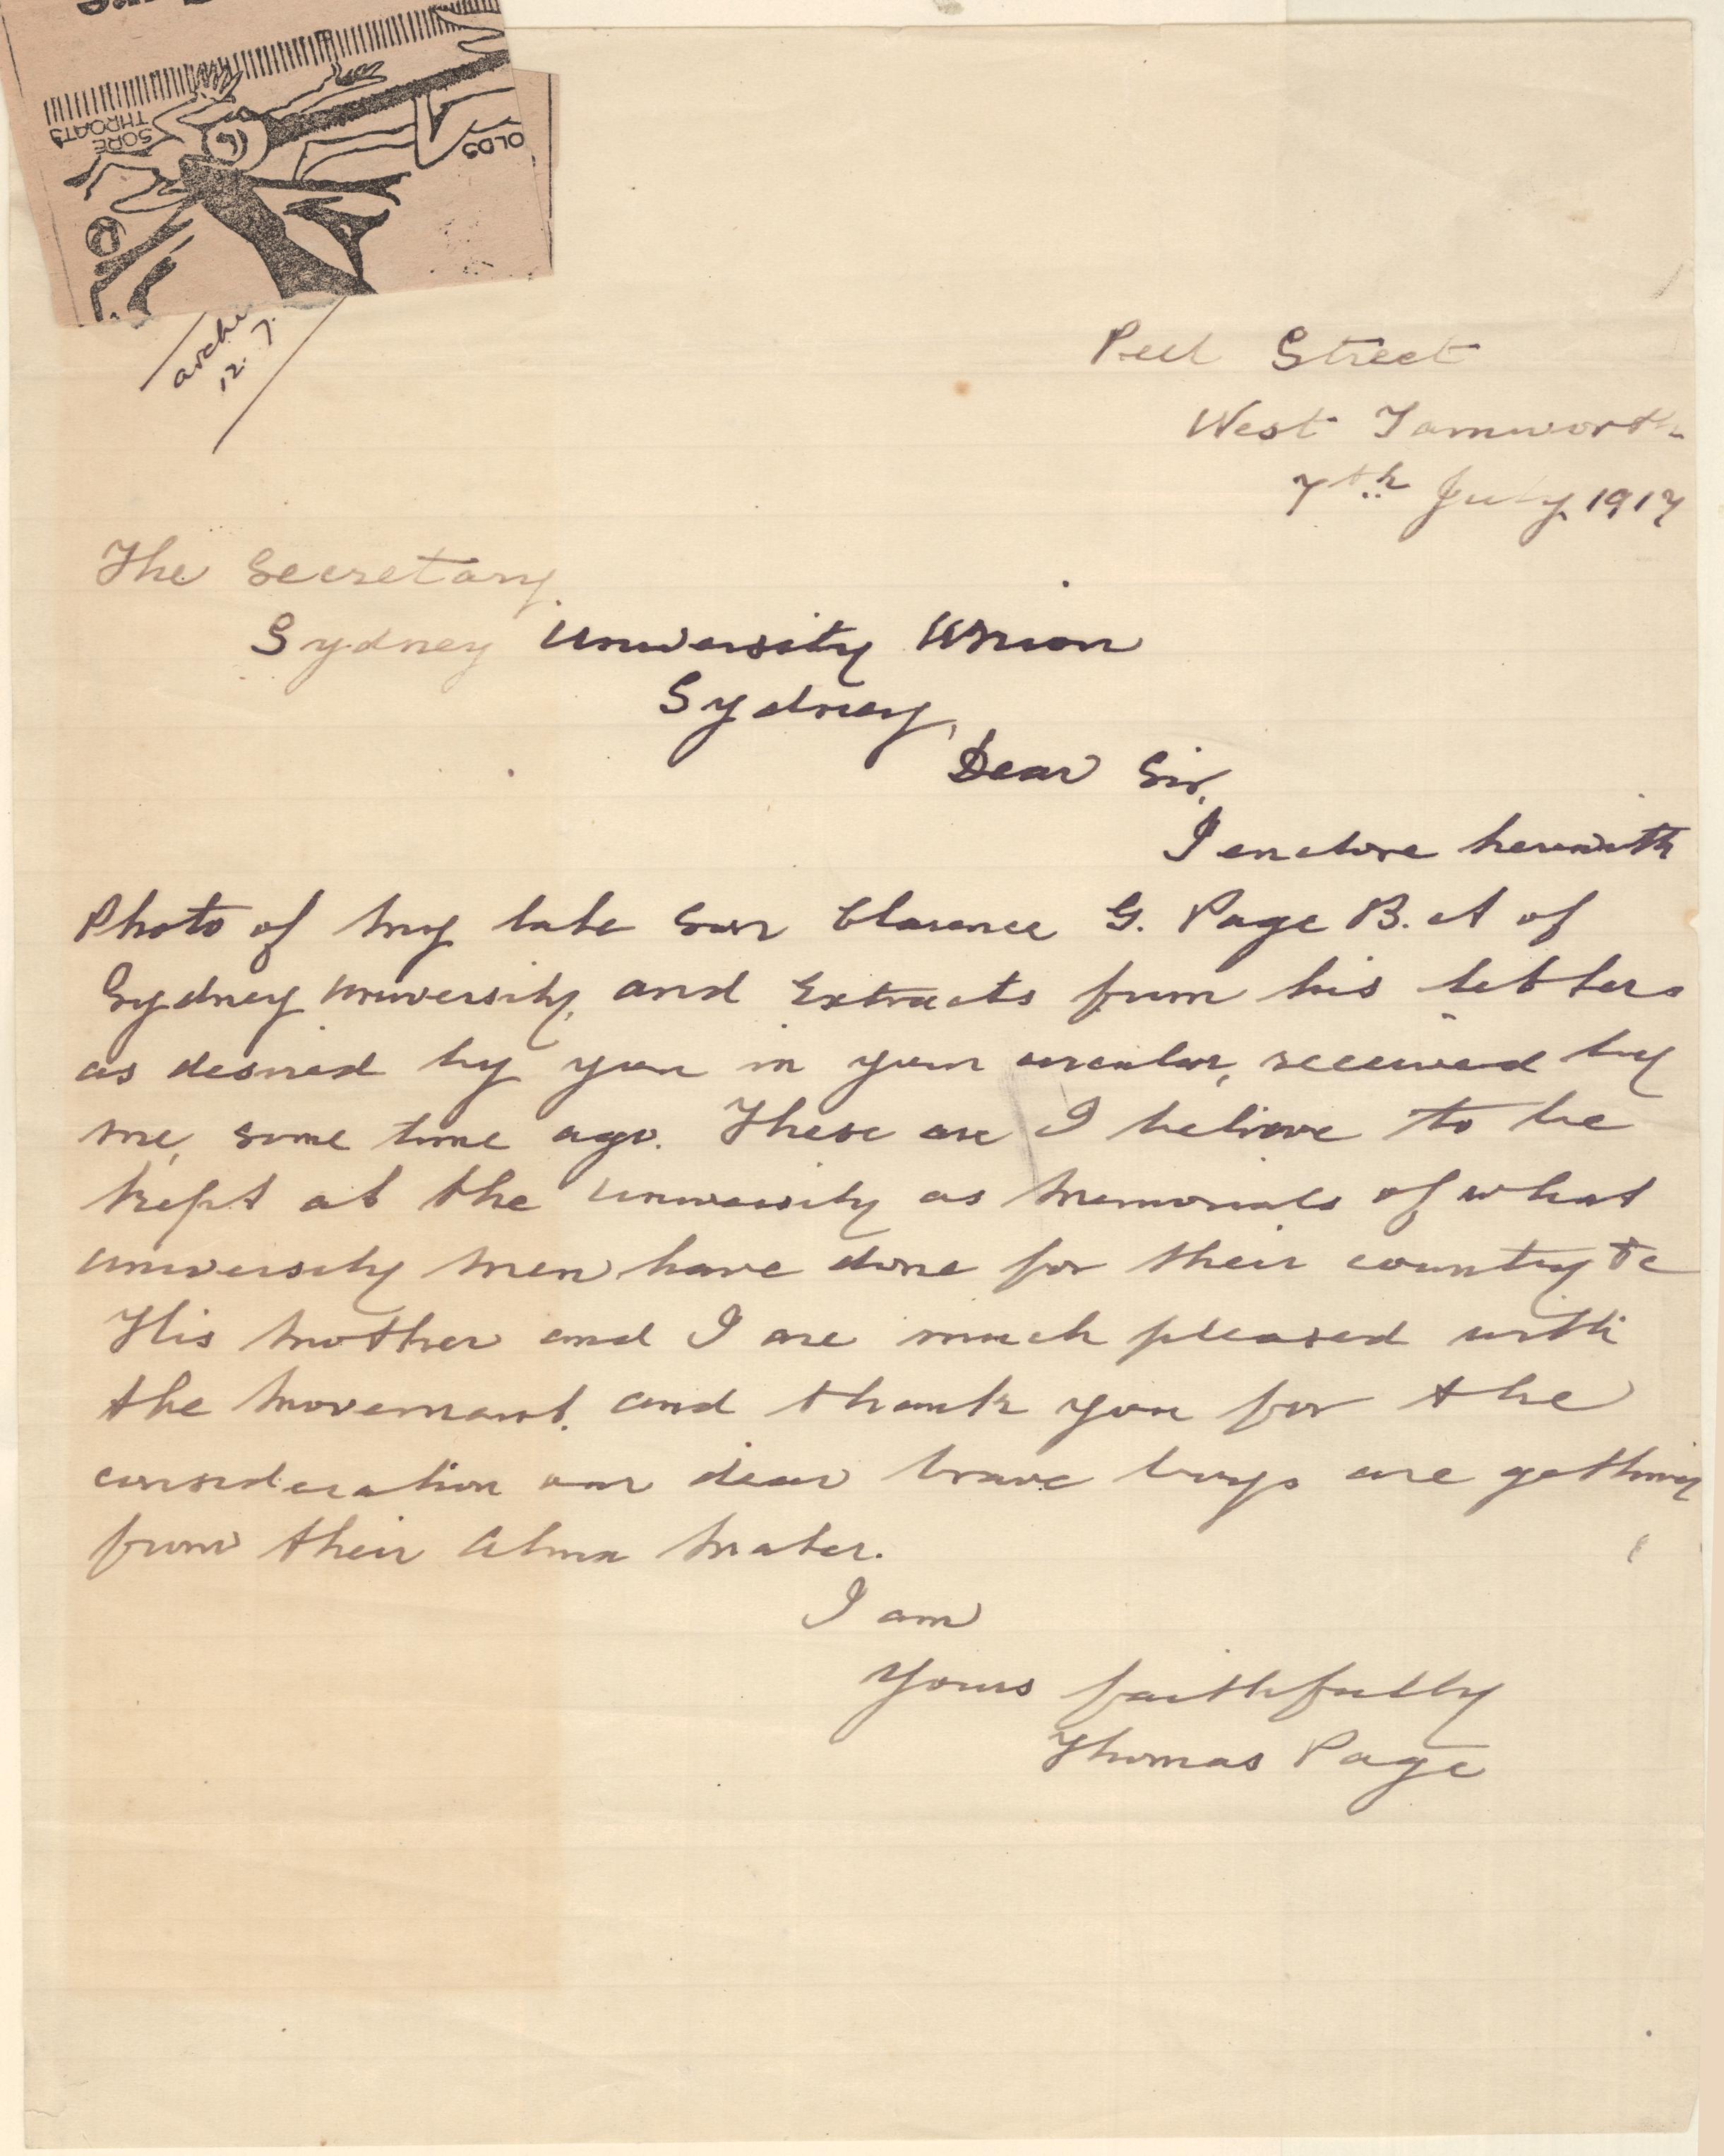 SORE
THROATS
OLDS
12.7.
Peel Street
West Tamworth
7th July 1917
The Secretary.
Sydney University Union
Sydney,
Dear Sir,
I enclose herewith
Photo of my late son Clarence G. Page B.A of
Sydney University, and Extracts from his letters
as desired by you in your circular, received by
me, some time ago. These are I believe to be
kept at the University as memorials of what
University men have done for their country &c
His mother and I are much pleased with
the movement. and thank you for the
consideration our dear brave boys are getting
from their Alma Mater.
I am
Yours faithfully
Thomas Page